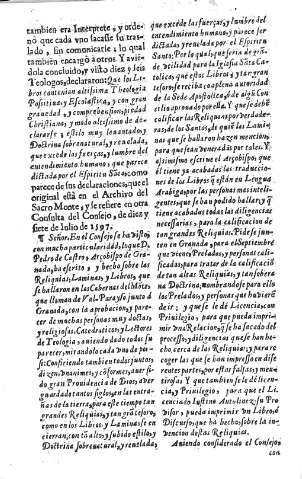 tambien era Interprete, y orde-
nò que cada vno sacasse su tras-
lado, sin comunicarle, lo qual
tambien encargò à otros. Y avie-
dola concluido, y visto diez y seis
Teologos, declararon: Que los Li-
bros contenian altissima Theologia
Positiua, y Escolastica, y con gran
grauedad, y compendiosos, piedad
Christianos, y modo altissimo de de-
clararse, y estilo muy leuantado, y
Doctrina sobrenatural, y reuelada,
que excede las fuerças, y lumbre del
entendimiento humano, y que parece
dictada del Espiritu Santo; como
parece de sus declaraciones, que el
original està en el Archivo del
Sacro Monte, y se refiere en otra
Consulta del Consejo, de diez y
siete de Iulio de 1597.
¶ Señor. En el Consejo se ha visto
con mucha particularidad, lo que D.
Pedro de Castro, Arçobispo de Gra-
nada, ha escrito, y hecho sobre las
Reliquias, Laminas, y Libros, que
se hallaron en las Cabernas del Mõte,
que llaman de Val-Parayso junto à
Granada, con la aprobacion, y pare-
cer de muchas personas muy doctas,
y religiosas, Catedraticos, y Lectores
de Teologia, auiendo dado todos su
parecer, mirandolo cada vno de por
si: Confiriendolo tambien todos juntos
diziendo, vnanimes, y cõformes, auer si-
do gran Prouidencia de Dios, auer
guardado tantos siglos, en las entra-
ñas de la tierra, para este tiempo tan
grandes Reliquias, y tan gran tesoro,
como en los Libros, y Laminas se en
cierran, con tã alto, y subido estilo, y
Doctrina sobrenatural, y reuelada,
que excede las fuerças, y lumbre del
entendimiento humano, y parece ser
dictadas, y reueladas por el Espiritu
Santo. Por lo qual, que seria de gran-
de vtilidad para la Iglesia Santa Ca-
tolica, que estos Libros, y tan gran
tesoro se reciba, con plena autoridad
de la Sede Apostolica, ò de aquel Con
cilio aprouado por ella. Y que se debẽ
calificar las Reliquias por verdade-
ras, de los Santos, de quien las Lami-
nas, que se hallaron hazen mencion,
para que sean veneradas por tales. Y
assimismo escriue el Arçobispo, que
èl tiene ya acabadas las traducciones
de los Libros, q̃ estàn en Lengua
Arabiga, por las personas mas inteli-
gentes, que se han podido hallar, y q̃
tiene acabadas todas las diligencias
necessarias, para la calificacion de
tan grandes Reliquias. Pide se jun-
ten en Granada, para el Septiembre
que viene, Prelados, y personas cali-
ficadas, para tratar de la calificaciõ
de tan altas Reliquias, y tan sobera
na Doctrina, nombrandose para ello
los Prelados, y personas que huuieren
de ir; y que se le dè Licencia, y
Priuilegio, para que pueda impri-
mir vna Relaciõ, q̃ se ha sacado del
processo, y diligencias que se han he-
cho, cerca de las Reliquias, y para re-
coger las que se han impresso en dife
rentes partes, por estar faltas, y men-
tirosas. Y que tambien se le dè licen-
cia, y Priuilegio, para que el Li-
cenciado Iustino Antolinez su Pro
visor, pueda imprimir vn Libro, ò
Discurso, que ha hecho sobre la in-
uencion destas Reliquias.
Auiendo considerado el Consejo